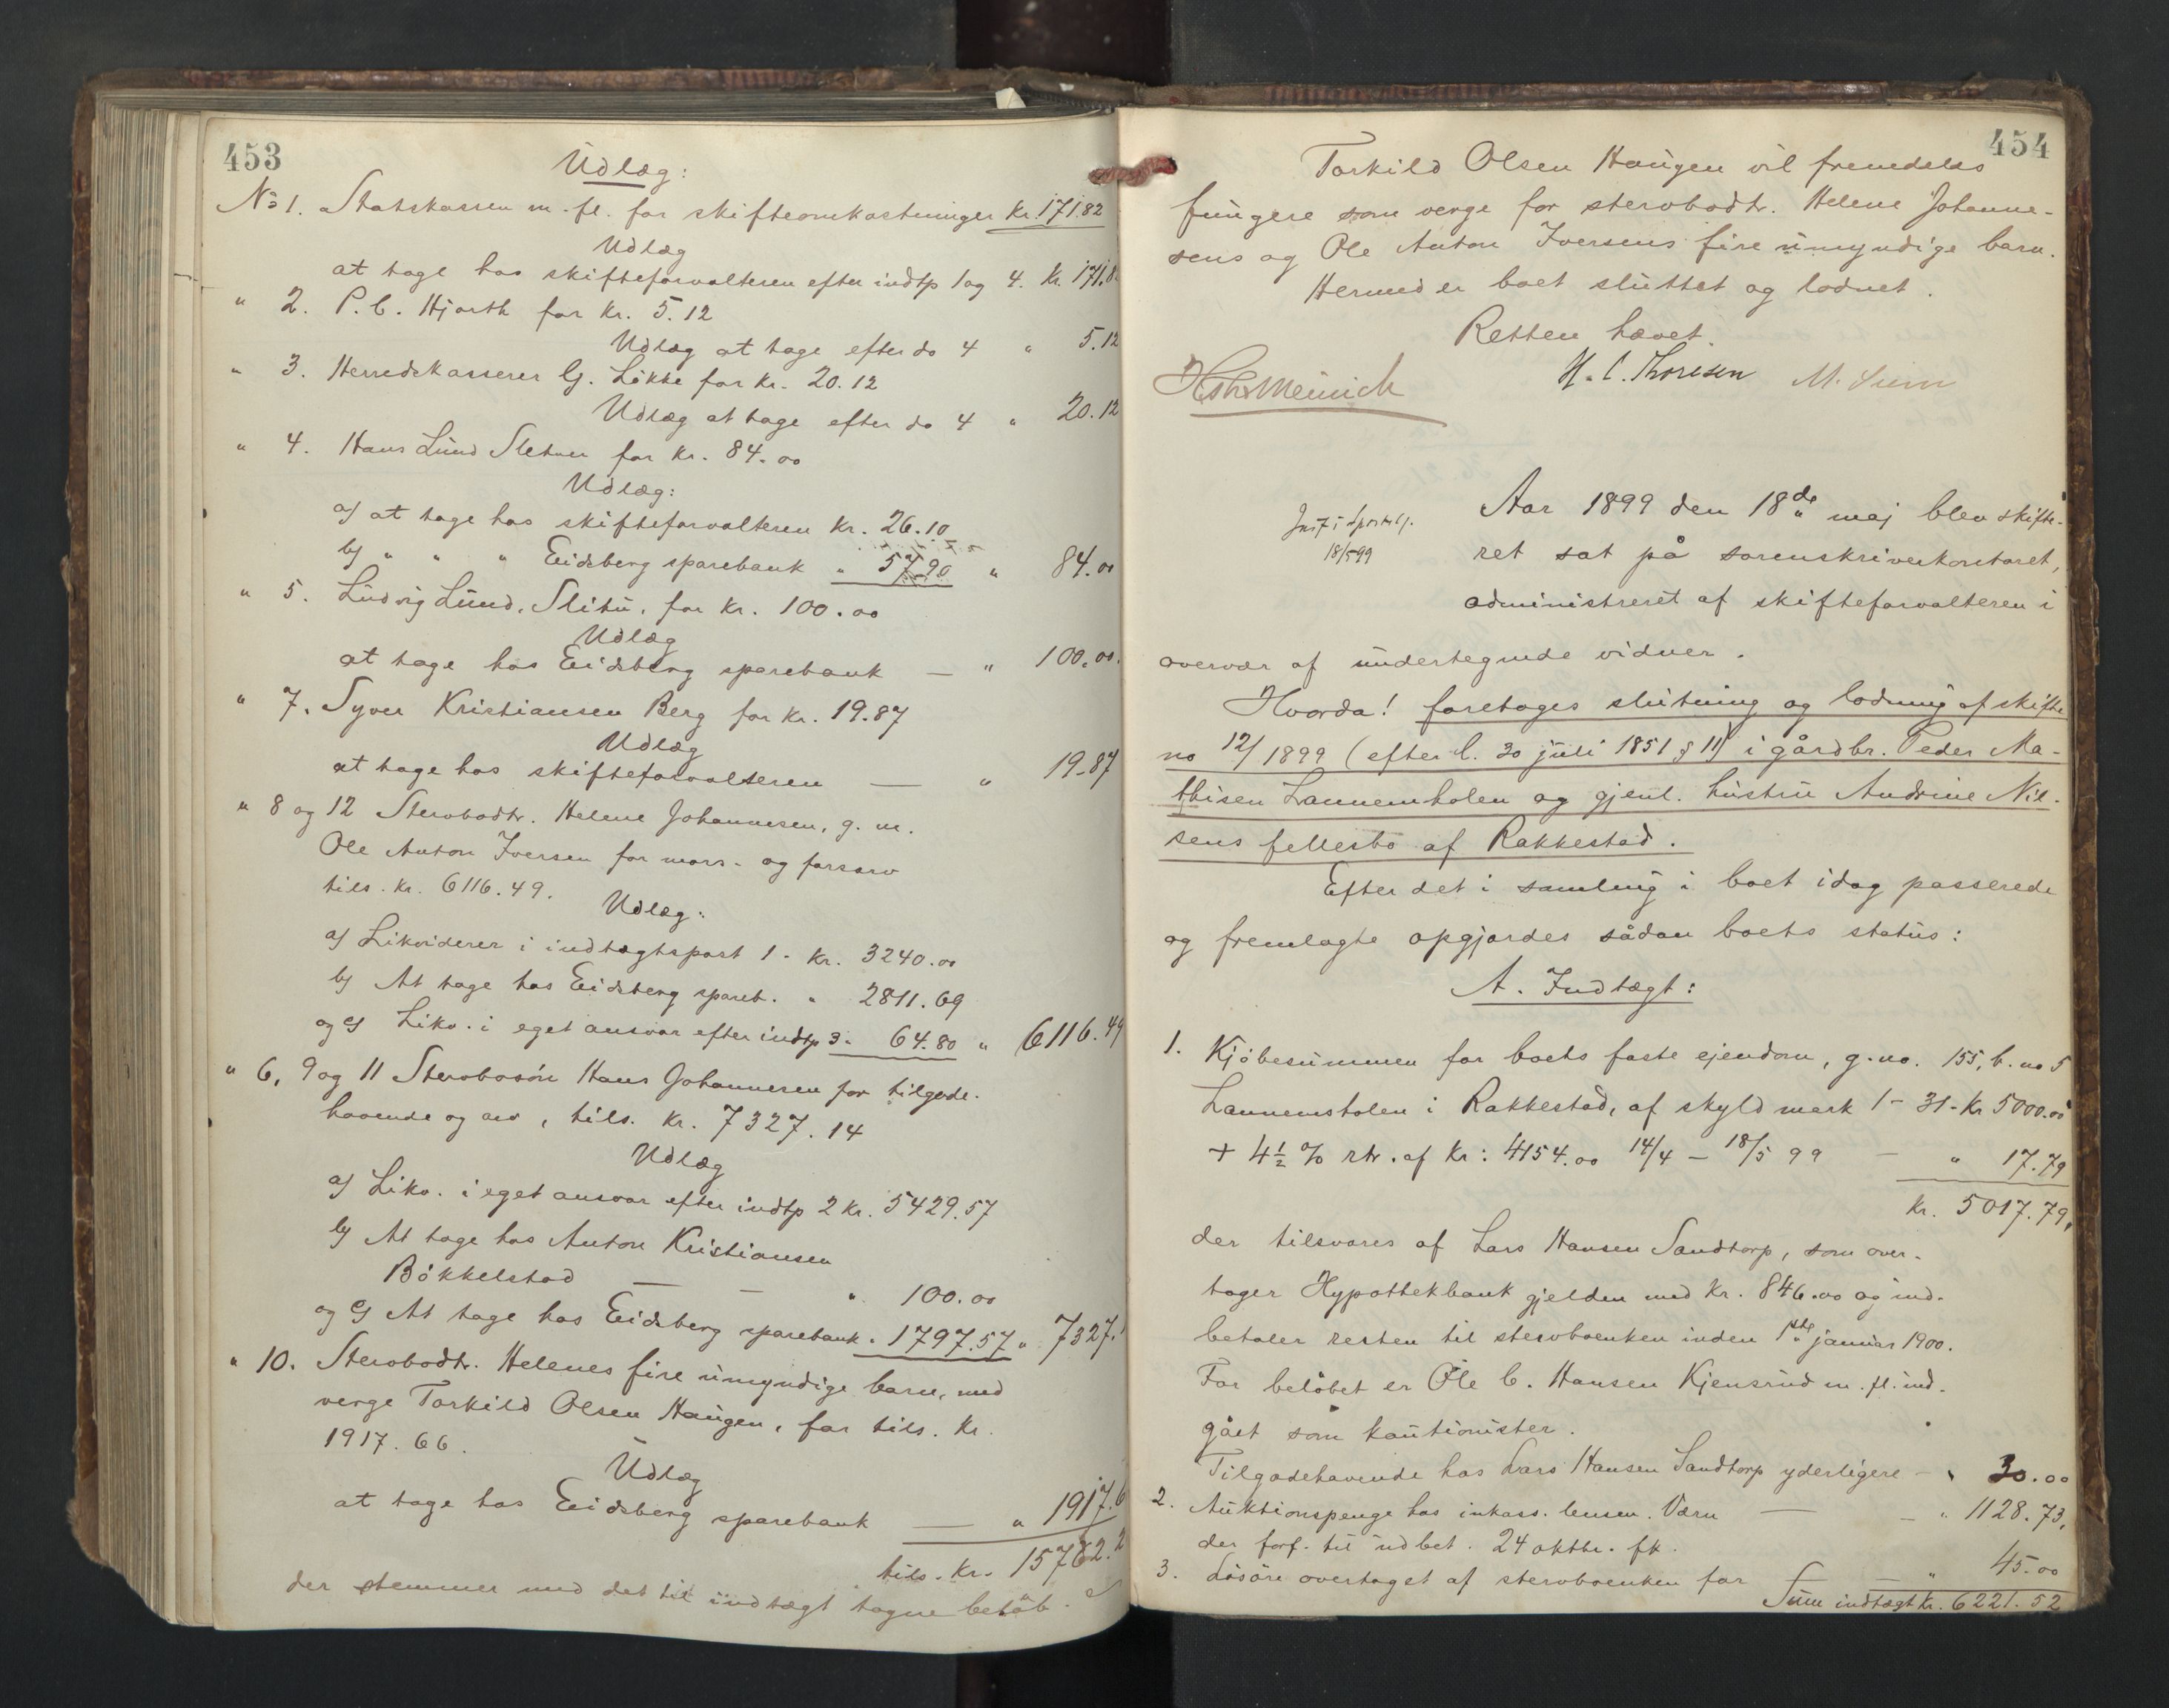 453
Udlæg:
No 1. Statskassen m. fl. for skifteomkostninger Kr. 171.82
Udlæg
at tage hos skifteforvalteren efter indtp 1 og 4. Kr. 171.8
" 2. P. C. Hjorth for Kr. 5.12
Udlæg at tage efter do 4 " 5.12
" 3. Herredskasserer G. Løkke for Kr. 20.12
Udlæg at tage efter do 4 " 20.12
" 4. Hans Lund Sletner for Kr. 84.00
Udlæg:
a) at tage hos skifteforvalteren Kr. 26.10
b) " " " Eidsberg sparebank " 57.90 " 84.00
" 5. Ludvig Lund, Slitu, for Kr. 100.00
Udlæg
at tage hos Eidsberg sparebank — " 100.00
" 7. Syver Kristiansen Berg for Kr. 19.87
Udlæg
at tage hos skifteforvalteren — " 19.87
" 8 og 12 Stervbodtr. Helene Johannesen, g. m.
Ole Anton Iversen for mors- og farsarv
tils. Kr. 6116.49.
Udlæg:
a) Likviderer i indtægtspost 1 - Kr. 3240.00
b) At tage hos Eidsberg spareb. " 2811.69
og c) Likv. i eget ansvar efter indtp 3 " 64.80 " 6116.49
" 6, 9 og 11 Stervbosøn Hans Johannesen for tilgode-
havende og arv, tils. Kr. 7327.14
Udlæg
a) Likv. i eget ansvar efter indtp 2 Kr. 5429.57
b) At tage hos Anton Kristiansen
Bøkkelstad — — " 100.00
og c) At tage hos Eidsberg sparebank " 1797.57 " 7327.1
" 10. Stervbodtr. Helenes fire umyndige barn, med
verge Torkild Olsen Haugen, for tils. Kr.
1917.66.
Udlæg
at tage hos Eidsberg sparebank — " 1917.6
tils. Kr. 15762.2
der stemmer med det til indtægt tagne beløb.
454
Torkild Olsen Haugen vil fremdeles
fungere som verge for stervbodtr. Helene Johanne-
sens og Ole Anton Iversens fire umyndige barn.
Hermed er boet sluttet og lodnet.
Retten hævet.
H. C. Thoresen
Aar 1899 den 18de maj blev skifte-
18/5 99
ret sat på sorenskriverkontoret,
administreret af skifteforvalteren i
overvær af undertegnede vidner.
Hvorda! foretoges slutning og lodning af skifte
no 12/1899 (efter l. 30 juli 1851 § 11) i gårdbr. Peder Ma-
thisen Lannemholen og gjenl. hustru Andrine Nil-
sens fellesbo af Rakkestad.
Efter det i samling i boet idag passerede
og fremlagte opgjordes sådan boets status:
A. Indtægt:
1. Kjøbesummen for boets faste ejendom, g. no. 155, b. no 5
Lannemholen i Rakkestad, af skyld mark 1 - 31 - Kr 5000.00
+ 4½ % rtr. af Kr: 4154.00 14/4 — 18/5 99 — " 17.79
Kr. 5017.79,
der tilsvares af Lars Hansen Sandtorp, som over-
tager Hypothekbank gjelden med Kr. 846.00 og ind-
betaler resten til stervboenken inden 1ste januar 1900.
For beløbet er Ole C. Hansen Kjensrud m. fl. ind-
gået som kautionister.
Tilgodehavende hos Lars Hansen Sandtorp yderligere - " 30.00
2. Auktionspenge hos inkass. lensm. Værn — " 1128.73,
der forf. til udbet. 24 oktbr. fk.
3. Løsøre overtaget af stervboenken for — " 45.00
Sum indtægt Kr. 6221.52